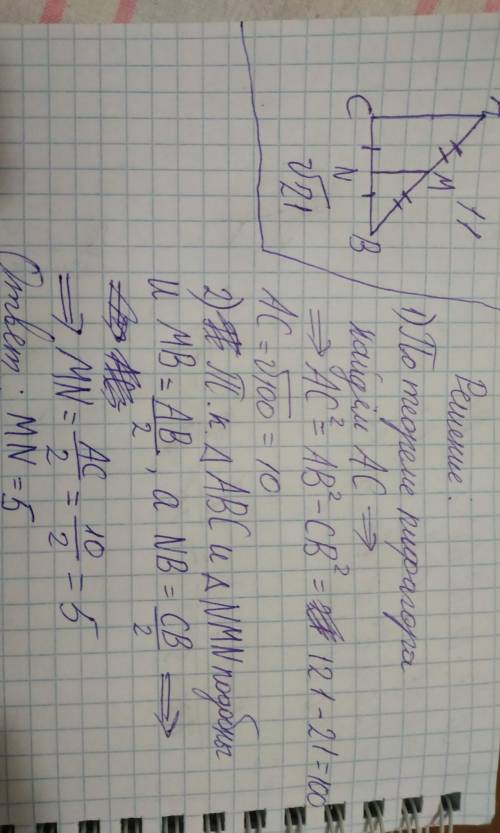 A
11
M
C
N
B
√21
Решение:
1) По теореме пифагора
найдём AC ⇒
⇒ AC² = AB² - CB² = 121 - 21 = 100
AC = √100 = 10
2) Т. к ΔABC и ΔNMN подобны
и MB = AB/2, а NB = CB/2 ⇒
⇒ MN = AC/2 = 10/2 = 5
Ответ: MN = 5